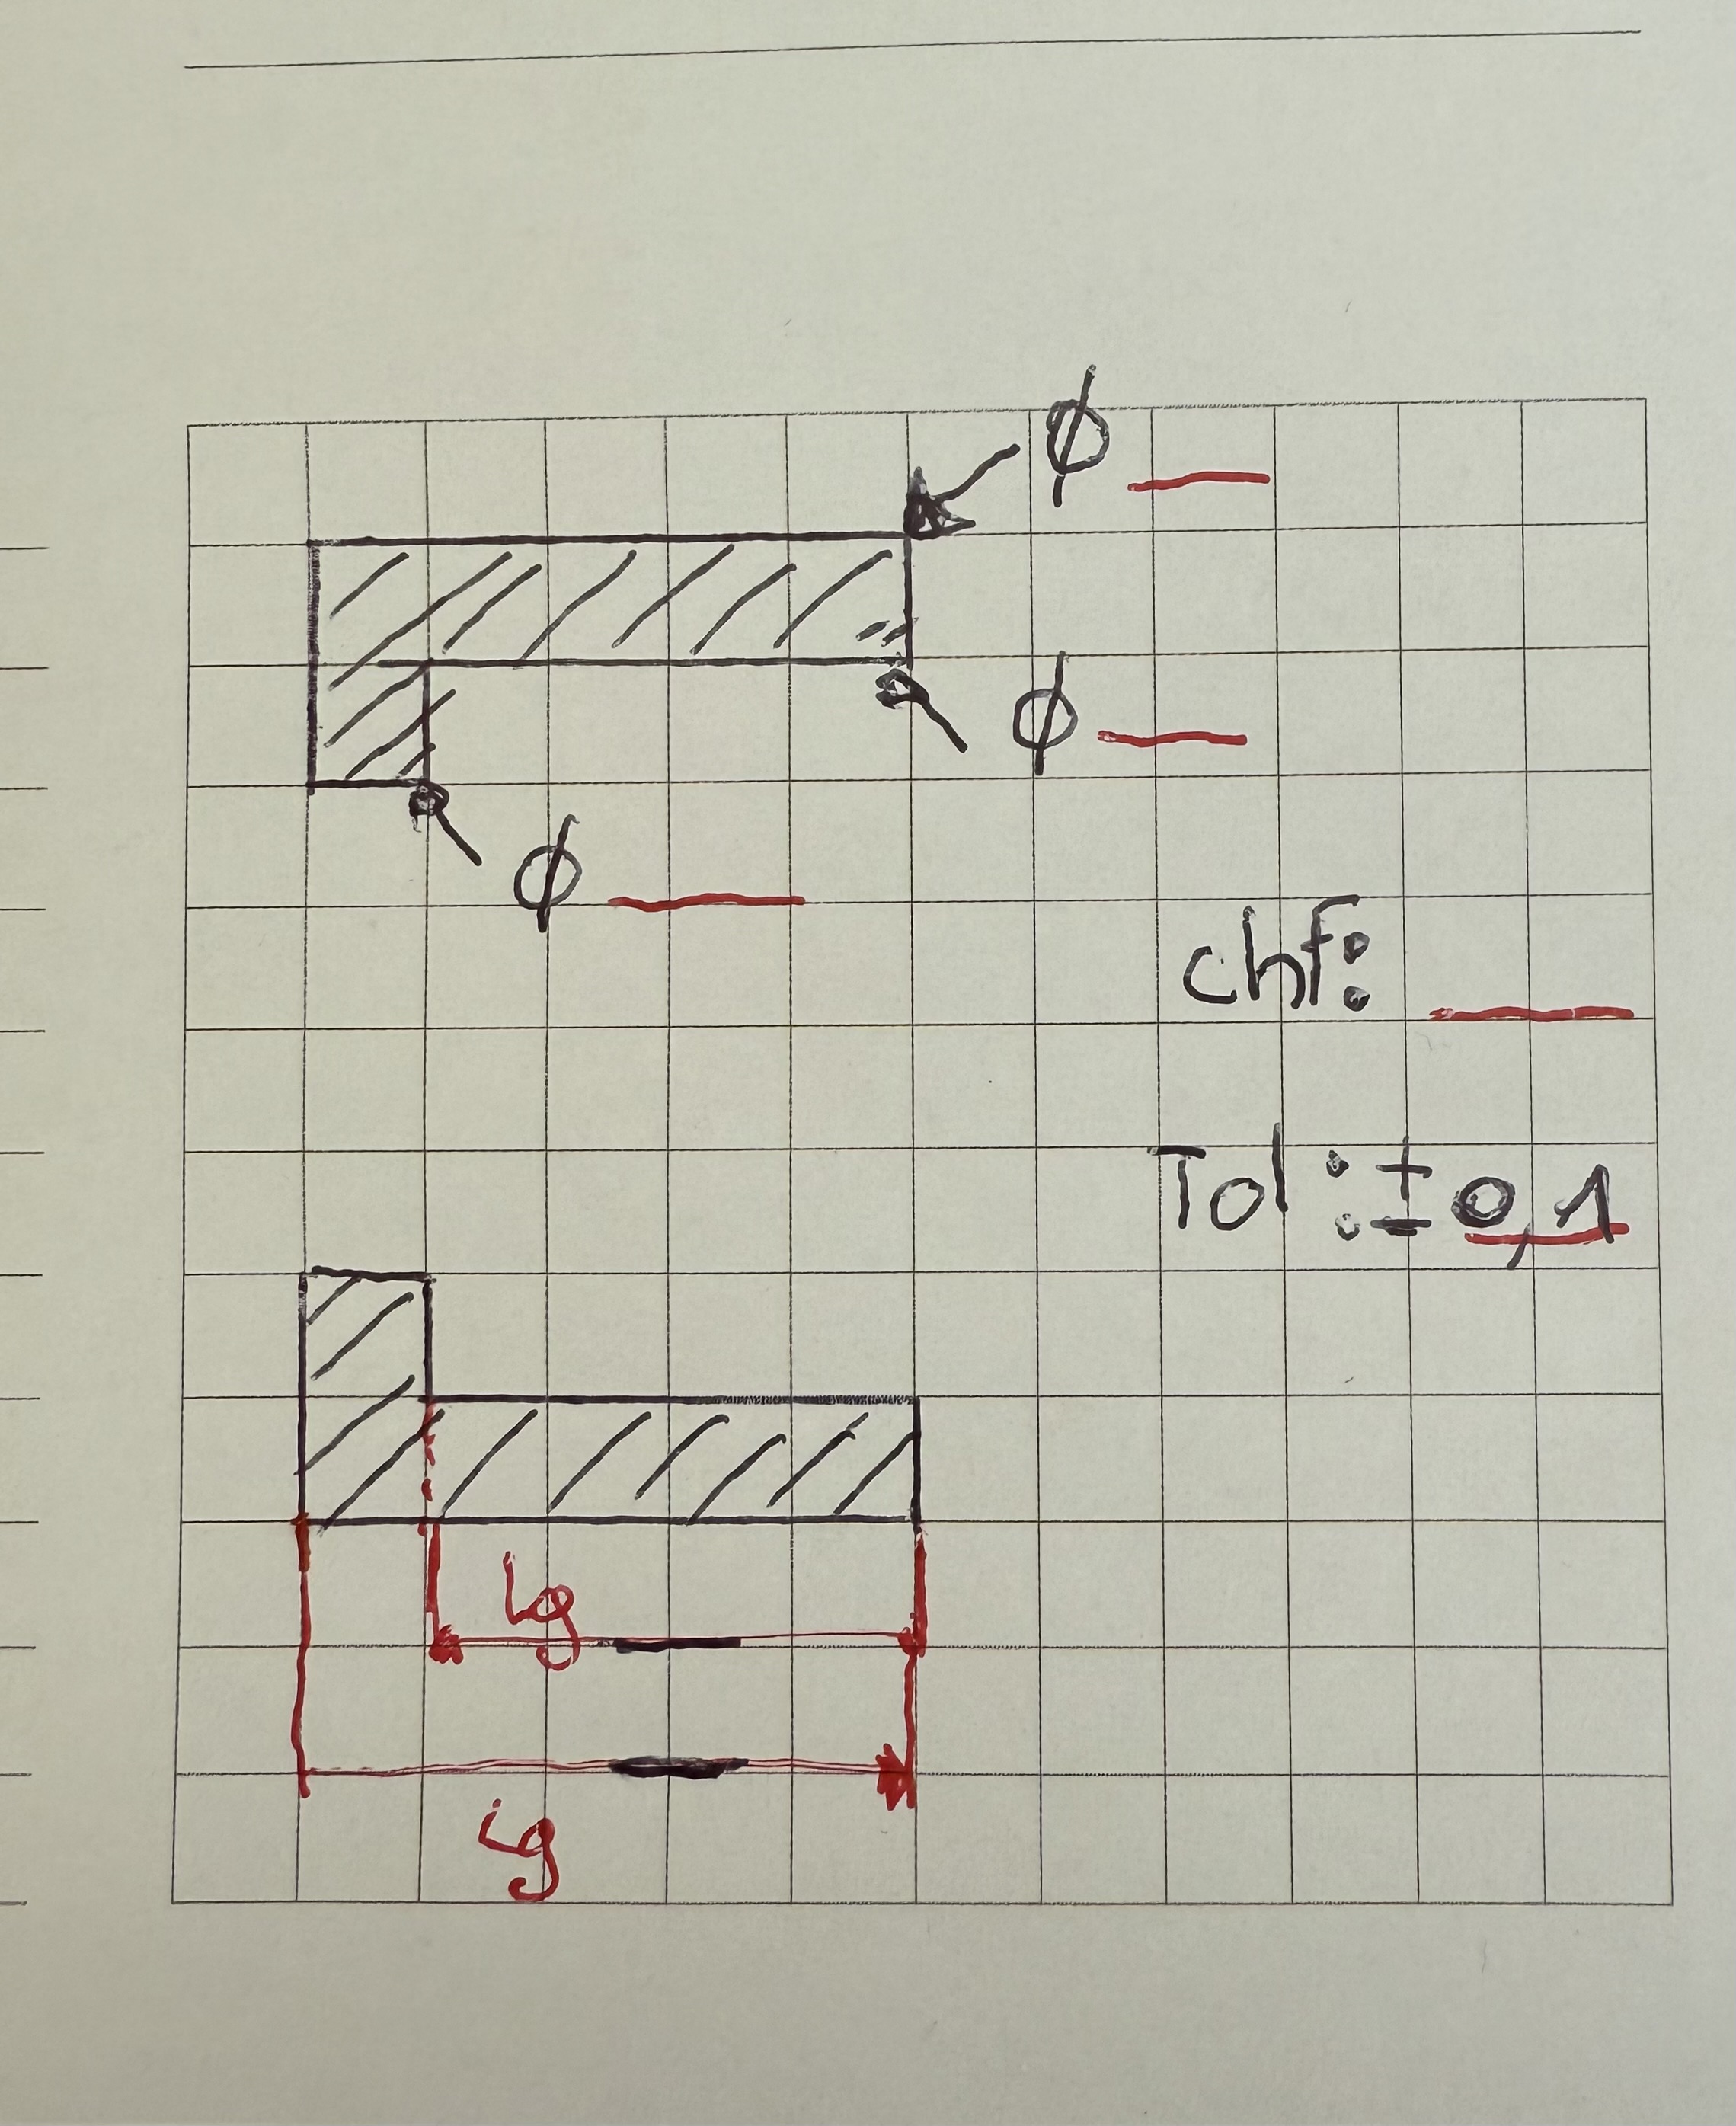 ϕ
ϕ
ϕ
chf:
Tol: ±0,1
lg
ig